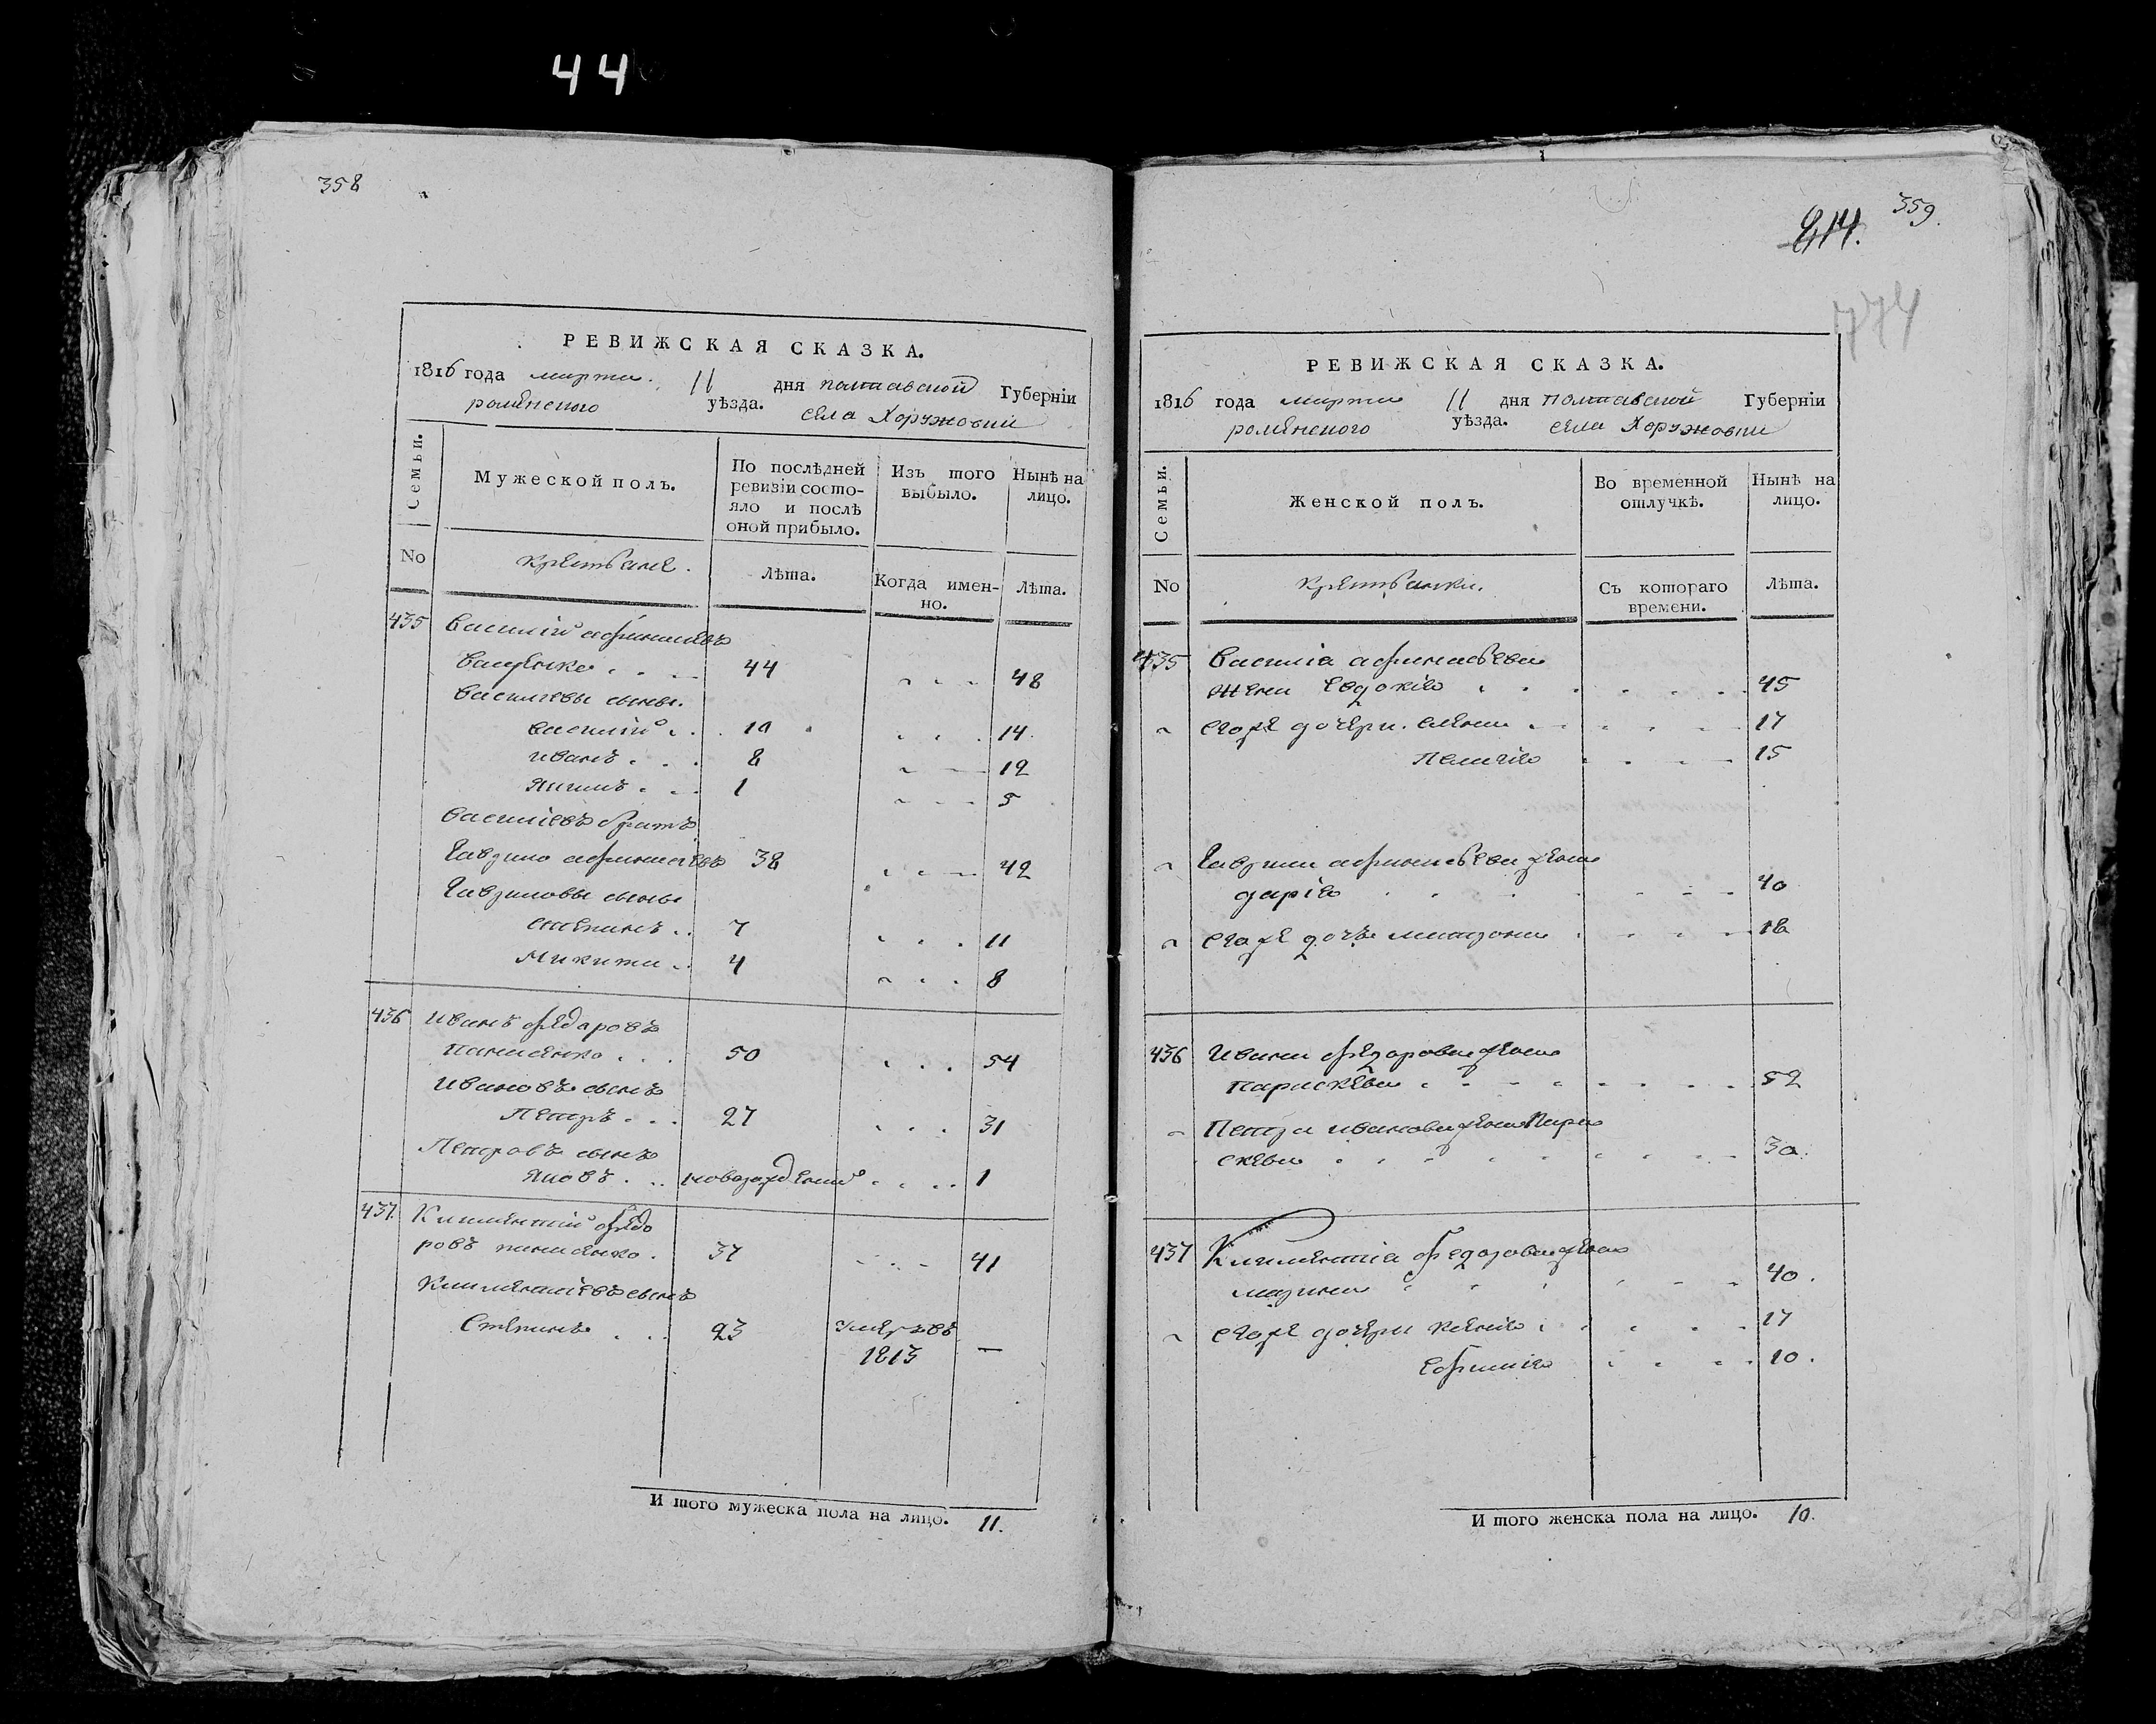 44
358
РЕВИЖСКАЯ СКАЗКА.
1816 года марта 11 дня полтавской Губерніи
роменского уѣзда. села Хоружовки
Семьи. Мужеской полъ. По послѣдней ревизіи состояло и послѣ оной прибыло. Изъ того выбыло. Нынѣ на лицо.
No крестьяне. Лѣта. Когда именно. Лѣта.
435 Василій афанасіевъ
44 48
Василіевы сыны.
василій 10 14
иванъ 8 12
Якимъ 1 5
василіевъ братъ
Гаврило афанасіевъ 38 42
Гавриловы сыны
степанъ 7 11
Микита 4 8
436 иванъ федоровъ
панасенко 50 54
ивановъ сынъ
Петръ 27 31
Петровъ сынъ
Яковъ новорожденый 1
437 Климентій федо
ровъ панасенко 37 41
Климентіевъ сынъ
Степанъ 23 умеръ въ
1813 —
И того мужеска пола на лицо. 11.
359.
214.
774
РЕВИЖСКАЯ СКАЗКА.
1816 года марта 11 дня полтавской Губерніи
роменского уѣзда. села Хоружовки
Семьи. Женской полъ. Во временной отлучкѣ. Нынѣ на лицо.
No крестьянки. Съ котораго времени. Лѣта.
435 Василіа афанасьева
жена Евдокіа 45
егоже дочери. олена 17
Пелагіа 15
Гаврила афанасьева жена
даріа 40
егоже дочь матрона 18
436 Ивана федорова жена
параскева 52
Петра иванова жена Пара
скева 30
437 Климентіа федорова жена
марина 40.
егоже дочери ксеніа 17
Ефиміа 10.
И того женска пола на лицо. 10.